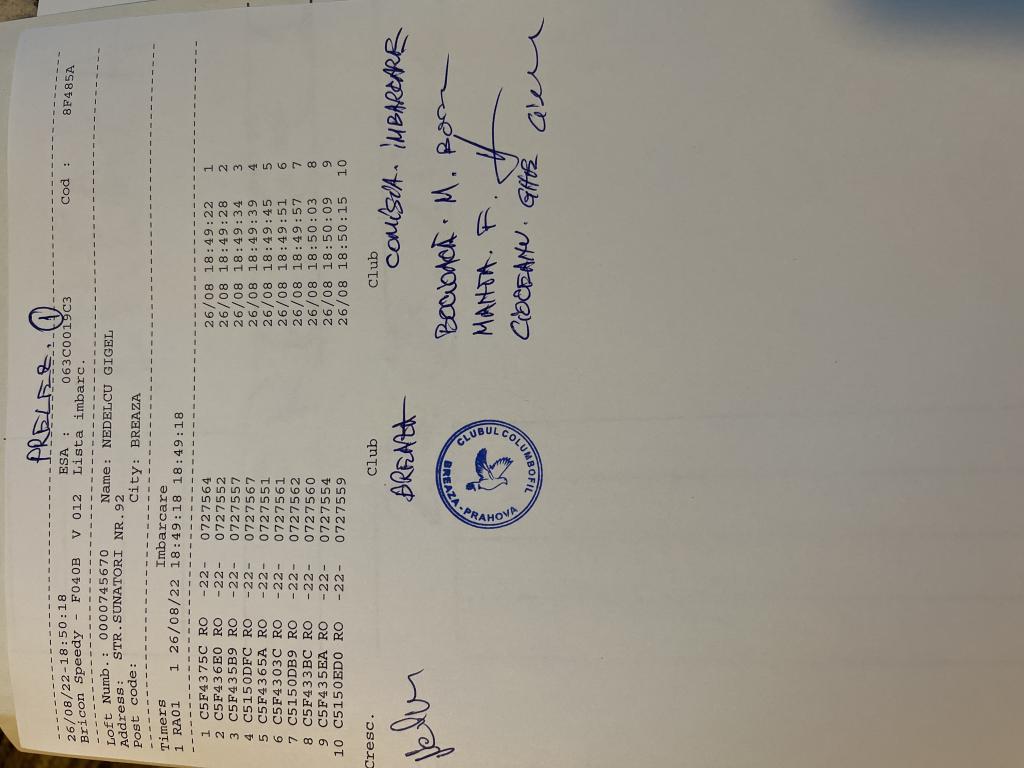 PRELEZ. 1
26/08/22-18:50:18 ESA : 063C0019C3 Cod : 8F485A
Bricon Speedy - F040B V 012 Lista imbarc.
Loft Numb.: 0000745670 Name: NEDELCU GIGEL
Address: STR.SUNATORI NR.92
Post code: City: BREAZA
Timers Imbarcare
1 RA01 1 26/08/22 18:49:18 18:49:18
1 C5F4375C RO -22- 0727564 26/08 18:49:22 1
2 C5F436E0 RO -22- 0727552 26/08 18:49:28 2
3 C5F435B9 RO -22- 0727557 26/08 18:49:34 3
4 C5150DFC RO -22- 0727567 26/08 18:49:39 4
5 C5F4365A RO -22- 0727551 26/08 18:49:45 5
6 C5F4303C RO -22- 0727561 26/08 18:49:51 6
7 C5150DB9 RO -22- 0727562 26/08 18:49:57 7
8 C5F433BC RO -22- 0727560 26/08 18:50:03 8
9 C5F435EA RO -22- 0727554 26/08 18:50:09 9
10 C5150ED0 RO -22- 0727559 26/08 18:50:15 10
Cresc. Club Club
BREAZA COMISIA. IMBARCARE
CLUBUL COLUMBOFIL
BREAZA-PRAHOVA
M.
MANTA. F.
CIOCEANU. GHOR